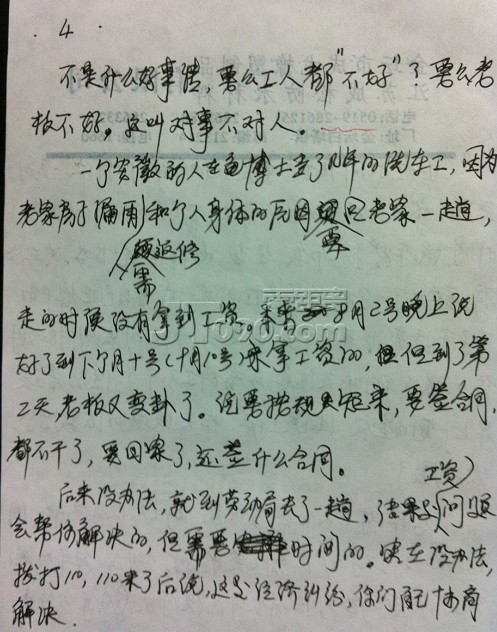 4
不是什么好事情，要么工人都"不好"？要么老
板不好。这叫对事不对人。
一个安徽的人在车博士干了几年的洗车工，因为
老家房子漏雨和个人身体的原因要回老家一趟，
需返修
走的时候没有拿到工资。本来9月2号晚上说
好了到下个月十号（十月10号）来拿工资的，但到了第
2天老板又变卦了。说要按规矩来，要签合同，
都不干了，要回家了，还签什么合同。
后来没办法，就到劳动局去了一趟，结果工资问题
会帮你解决的，但需要时间的。实在没办法，
拨打110，110来了后说，这是经济纠纷，你们自己协商
解决.